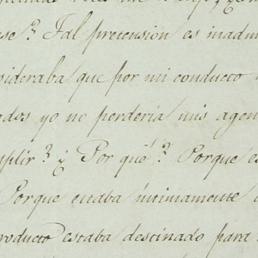 se? Tal pretensión es inadm
sideraba que por mi conducto
ados yo no perdería mis agen
plir? ¿Por qué? Porque e
Porque estaba íntimamente
roducto estaba destinado para